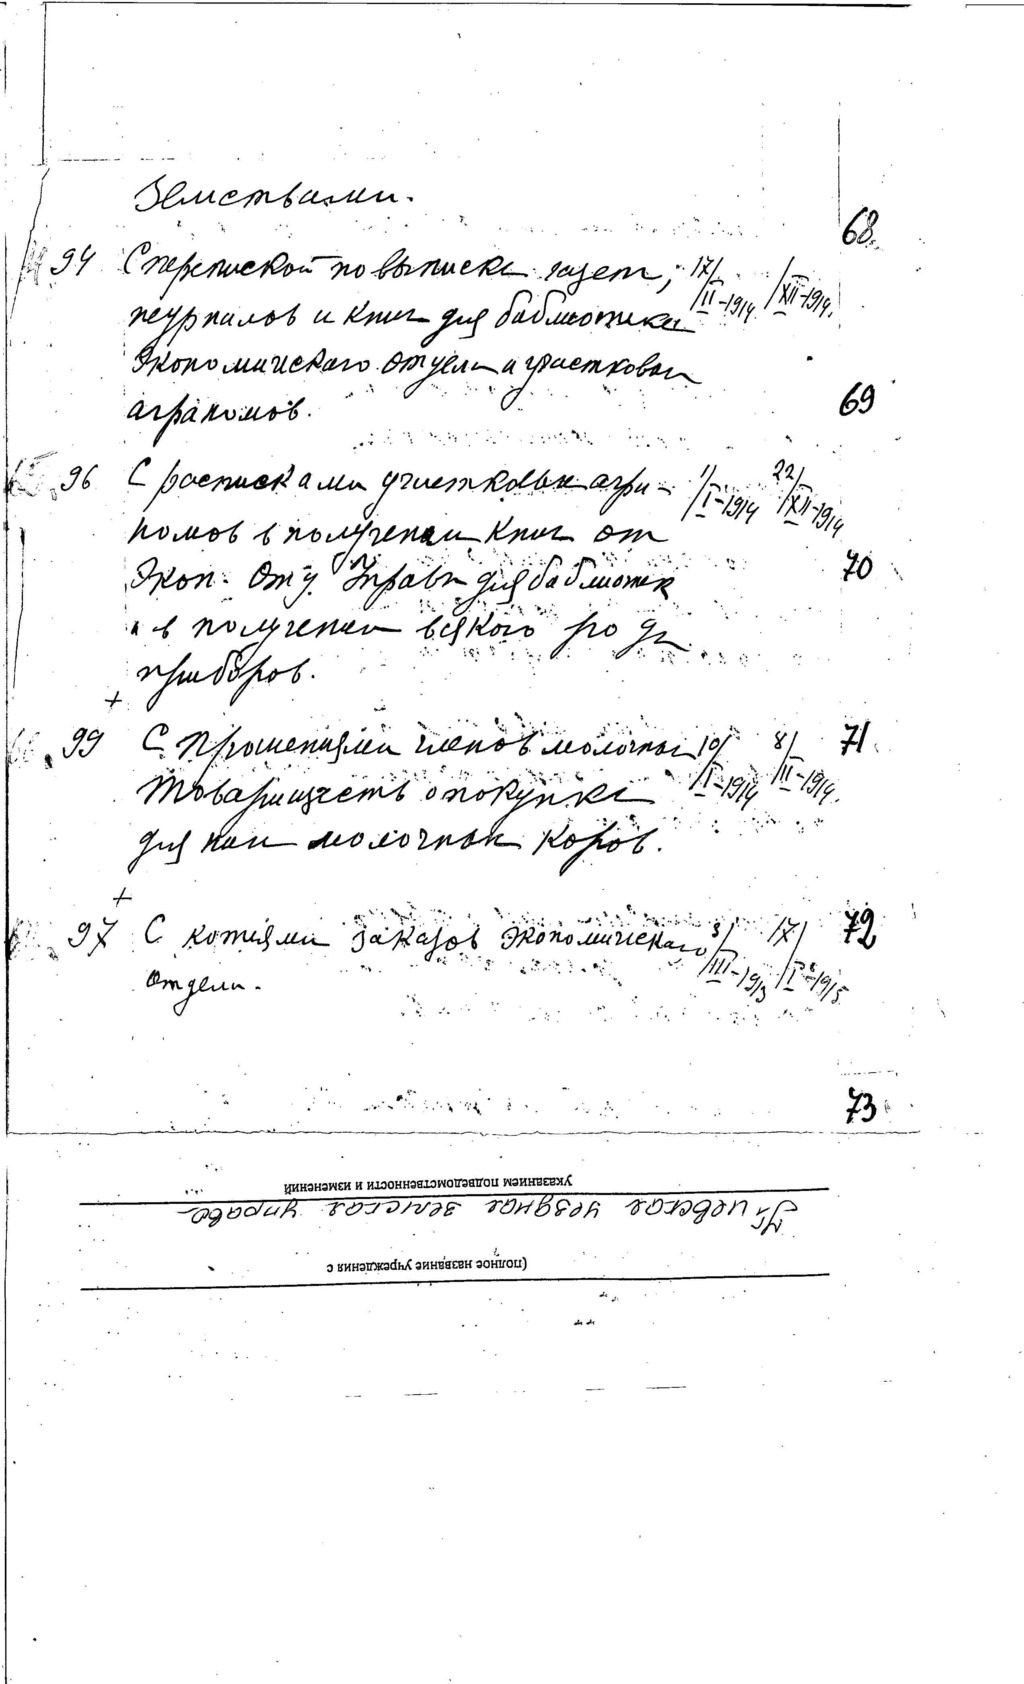 Земствами.
68.
94 С перепиской по выписке газет, 17/II-1914 /XII-1914.
журналов и книг для библиотеки
Экономическаго Отдела и участковых
агрономов.
69
96 С расписками участковых агро- 1/I-1914 22/XII-1914
номов в получении книг от
Экон. Отд. Управы для библиотек
и в получении всякого рода
70
приборов.
99 С прошениями членов молочных 10/I-1914 8/II-1914. 71.
Товариществ о покупке
для них молочных коров.
97 С копиями заказов Экономическаго 3/III-1913 17/I-1915 72
Отдела.
73
указанием подведомственности и изменений
уездная земская управа
(полное название учреждения с